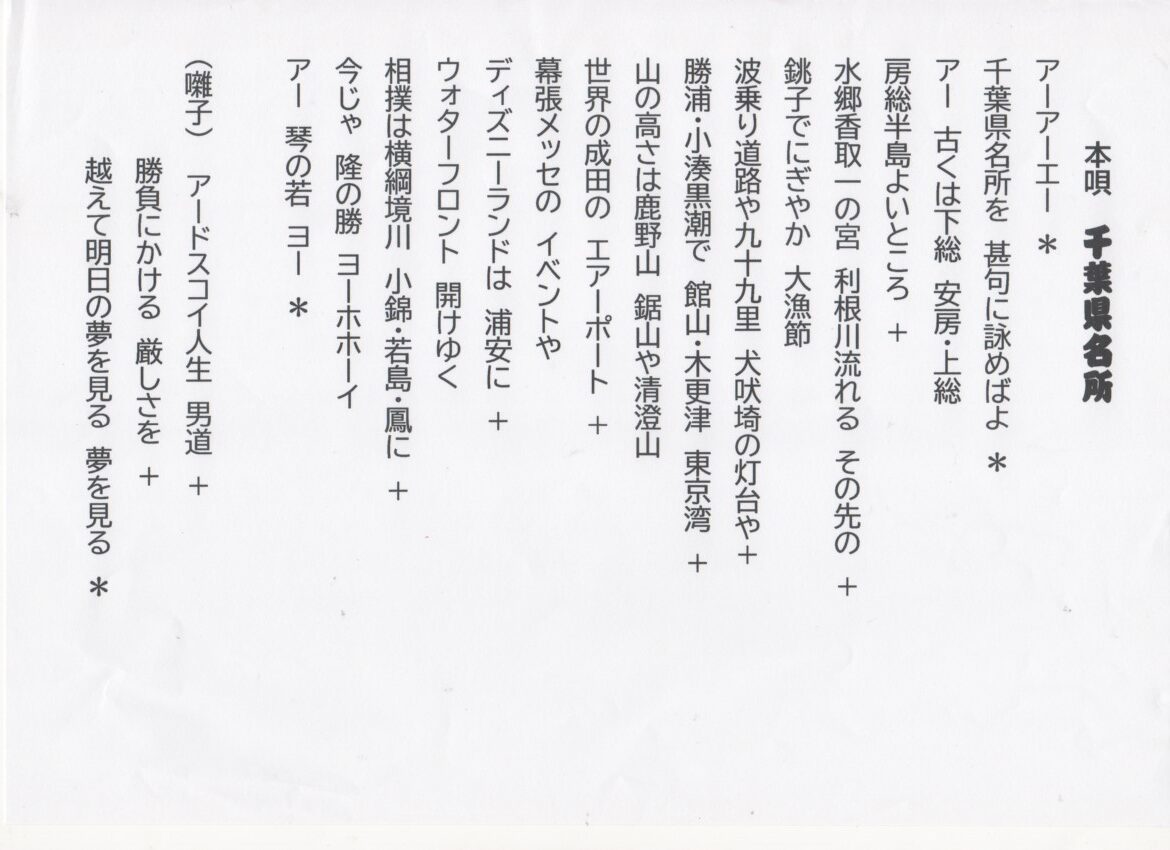 本唄 千葉県名所
アーアーエー *
千葉県名所を 甚句に詠めばよ *
アー 古くは下総 安房・上総
房総半島よいところ +
水郷香取一の宮 利根川流れる その先の +
銚子でにぎやか 大漁節
波乗り道路や九十九里 犬吠埼の灯台や+
勝浦・小湊黒潮で 館山・木更津 東京湾 +
山の高さは鹿野山 鋸山や清澄山
世界の成田の エアーポート +
幕張メッセの イベントや
ディズニーランドは 浦安に +
ウォターフロント 開けゆく
相撲は横綱境川 小錦・若島・鳳に +
今じゃ 隆の勝 ヨーホホーイ
アー 琴の若 ヨー *
(囃子) アードスコイ人生 男道 +
勝負にかける 厳しさを +
越えて明日の夢を見る 夢を見る *